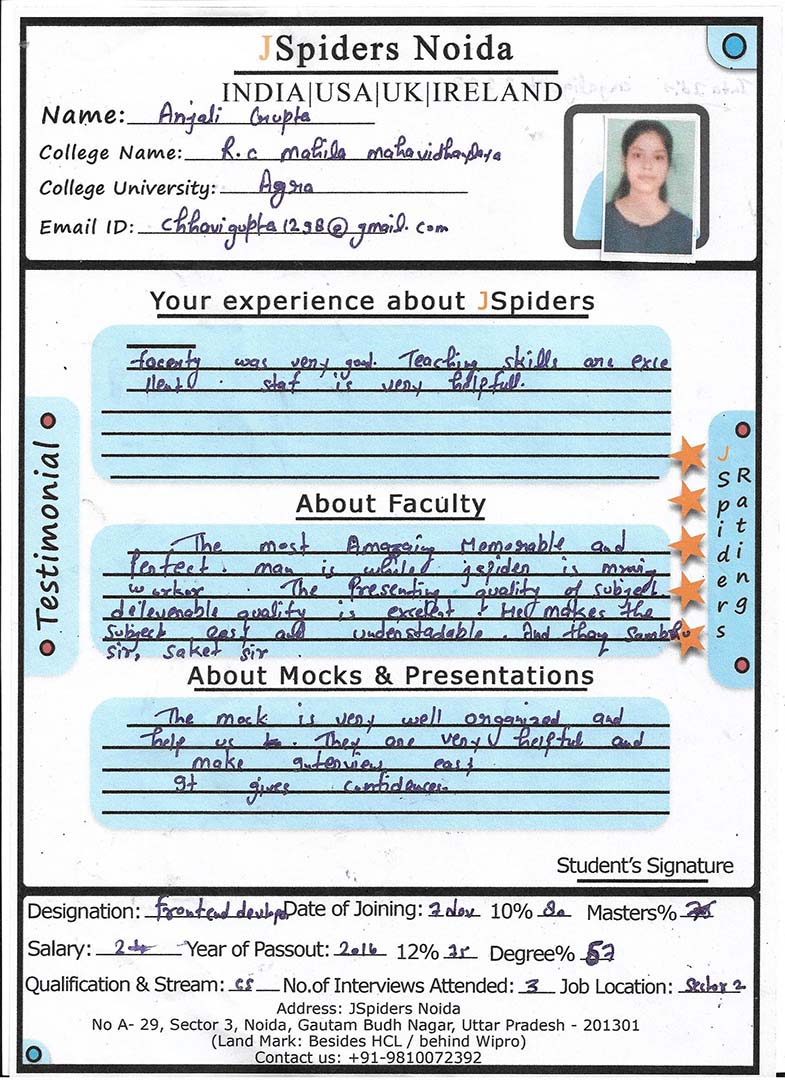 JSpiders Noida
INDIA|USA|UK|IRELAND
Name: Anjali Gupta
College Name: R.c mahila mahavidhaylaya
College University: Agra
Email ID: chhavigupta1298@gmail.com
Your experience about JSpiders
was very good. Teaching skills are exce
llent . staf is very helpfull.
Testimonial
JSpiders
Ratings
About Faculty
The most Amazaing Memorable and
Perfect . man is while jspider is
worker . The Presenting quality of subject
deleverable quality is excelent . He makes the
subject easy and understadable . And thay Sambhu
sir, saket sir .
About Mocks & Presentations
The mock is very well organized and
help us . They are very helpful and
make interview easy
It gives confidences.
Student's Signature
Designation: Frontend Date of Joining: 2 Nov 10% 80 Masters%
Salary: Year of Passout: 2016 12% 75 Degree%
Qualification & Stream: CS No.of Interviews Attended: 3 Job Location: Sector 2
Address: JSpiders Noida
No A- 29, Sector 3, Noida, Gautam Budh Nagar, Uttar Pradesh - 201301
(Land Mark: Besides HCL / behind Wipro)
Contact us: +91-9810072392